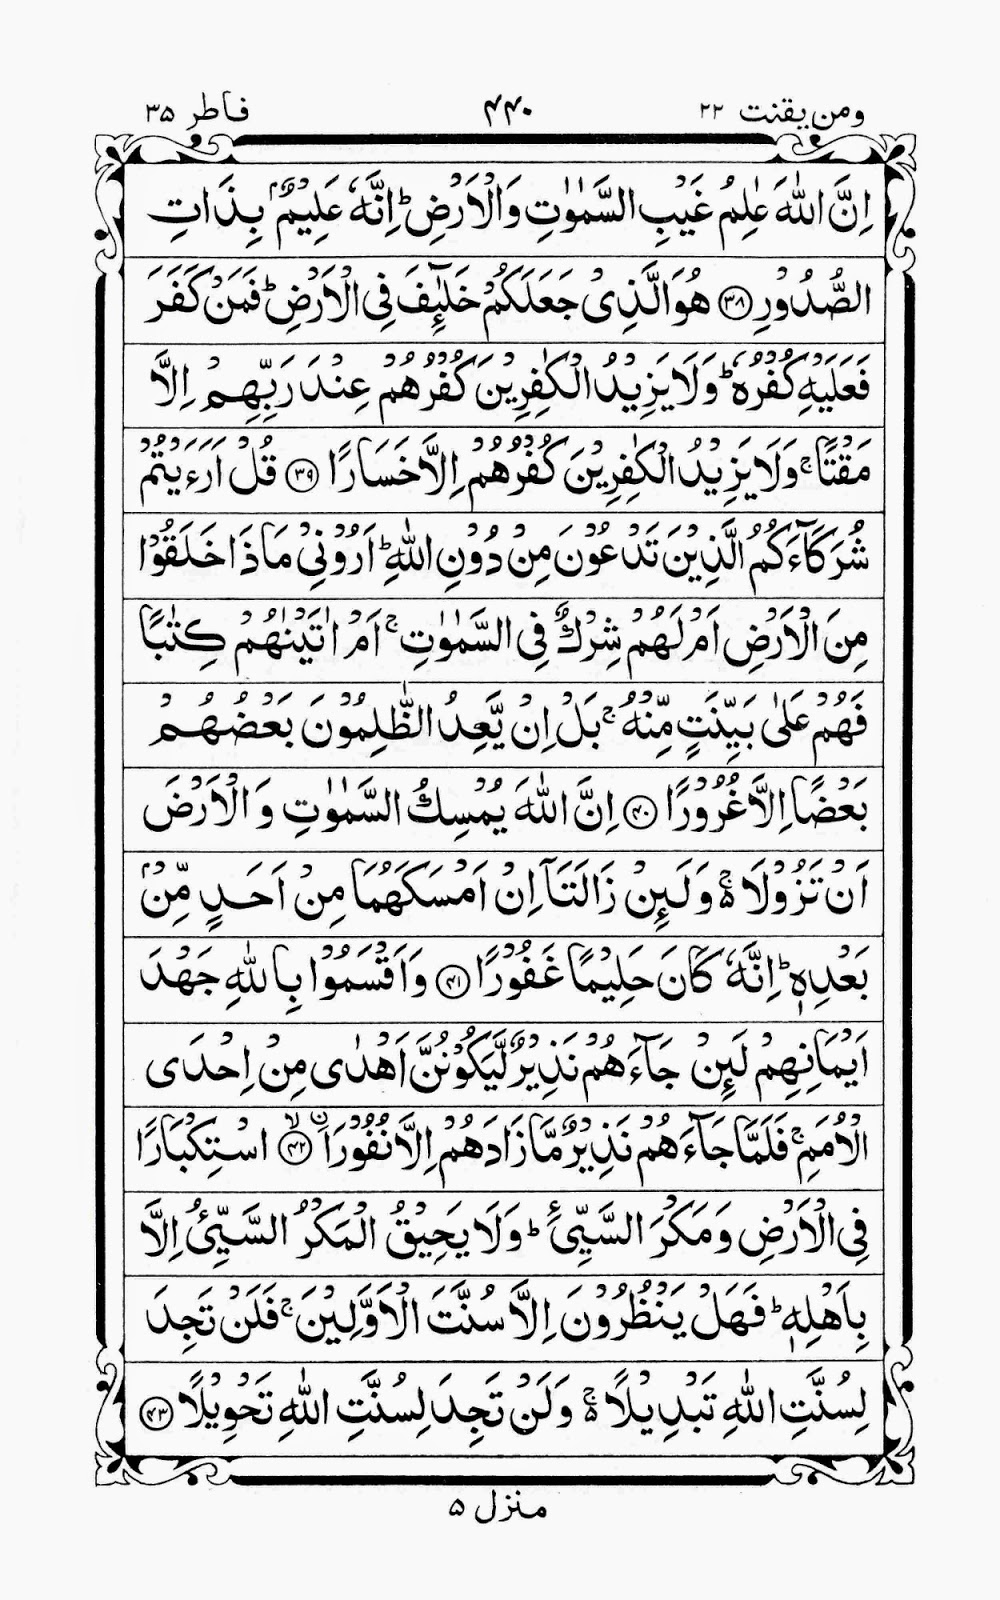 ومن يقنت ٢٢ ۴۴۰ فاطر ۳۵
اِنَّ اللّٰهَ عٰلِمُ غَيْبِ السَّمٰوٰتِ وَالْاَرْضِ ؕ اِنَّهٗ عَلِيْمٌۢ بِذَاتِ
الصُّدُوْرِ ۝۳۸ هُوَ الَّذِىْ جَعَلَكُمْ خَلٰٓئِفَ فِى الْاَرْضِ ؕ فَمَنْ كَفَرَ
فَعَلَيْهِ كُفْرُهٗ ؕ وَلَا يَزِيْدُ الْكٰفِرِيْنَ كُفْرُهُمْ عِنْدَ رَبِّهِمْ اِلَّا
مَقْتًا ۚ وَلَا يَزِيْدُ الْكٰفِرِيْنَ كُفْرُهُمْ اِلَّا خَسَارًا ۝۳۹ قُلْ اَرَءَيْتُمْ
شُرَكَآءَكُمُ الَّذِيْنَ تَدْعُوْنَ مِنْ دُوْنِ اللّٰهِ ؕ اَرُوْنِىْ مَاذَا خَلَقُوْا
مِنَ الْاَرْضِ اَمْ لَهُمْ شِرْكٌ فِى السَّمٰوٰتِ ۚ اَمْ اٰتَيْنٰهُمْ كِتٰبًا
فَهُمْ عَلٰى بَيِّنَتٍ مِّنْهُ ۚ بَلْ اِنْ يَّعِدُ الظّٰلِمُوْنَ بَعْضُهُمْ
بَعْضًا اِلَّا غُرُوْرًا ۝۴۰ اِنَّ اللّٰهَ يُمْسِكُ السَّمٰوٰتِ وَالْاَرْضَ
اَنْ تَزُوْلَا ۚ۬ وَلَئِنْ زَالَتَاۤ اِنْ اَمْسَكَهُمَا مِنْ اَحَدٍ مِّنْۢ
بَعْدِهٖ ؕ اِنَّهٗ كَانَ حَلِيْمًا غَفُوْرًا ۝۴۱ وَاَقْسَمُوْا بِاللّٰهِ جَهْدَ
اَيْمَانِهِمْ لَئِنْ جَآءَهُمْ نَذِيْرٌ لَّيَكُوْنُنَّ اَهْدٰى مِنْ اِحْدَى
الْاُمَمِ ۚ فَلَمَّا جَآءَهُمْ نَذِيْرٌ مَّا زَادَهُمْ اِلَّا نُفُوْرًا ۙ۝۴۲ اسْتِكْبَارًا
فِى الْاَرْضِ وَمَكْرَ السَّيِّئِ ؕ وَلَا يَحِيْقُ الْمَكْرُ السَّيِّئُ اِلَّا
بِاَهْلِهٖ ؕ فَهَلْ يَنْظُرُوْنَ اِلَّا سُنَّتَ الْاَوَّلِيْنَ ۚ فَلَنْ تَجِدَ
لِسُنَّتِ اللّٰهِ تَبْدِيْلًا ۚ۬ وَلَنْ تَجِدَ لِسُنَّتِ اللّٰهِ تَحْوِيْلًا ۝۴۳
منزل ۵